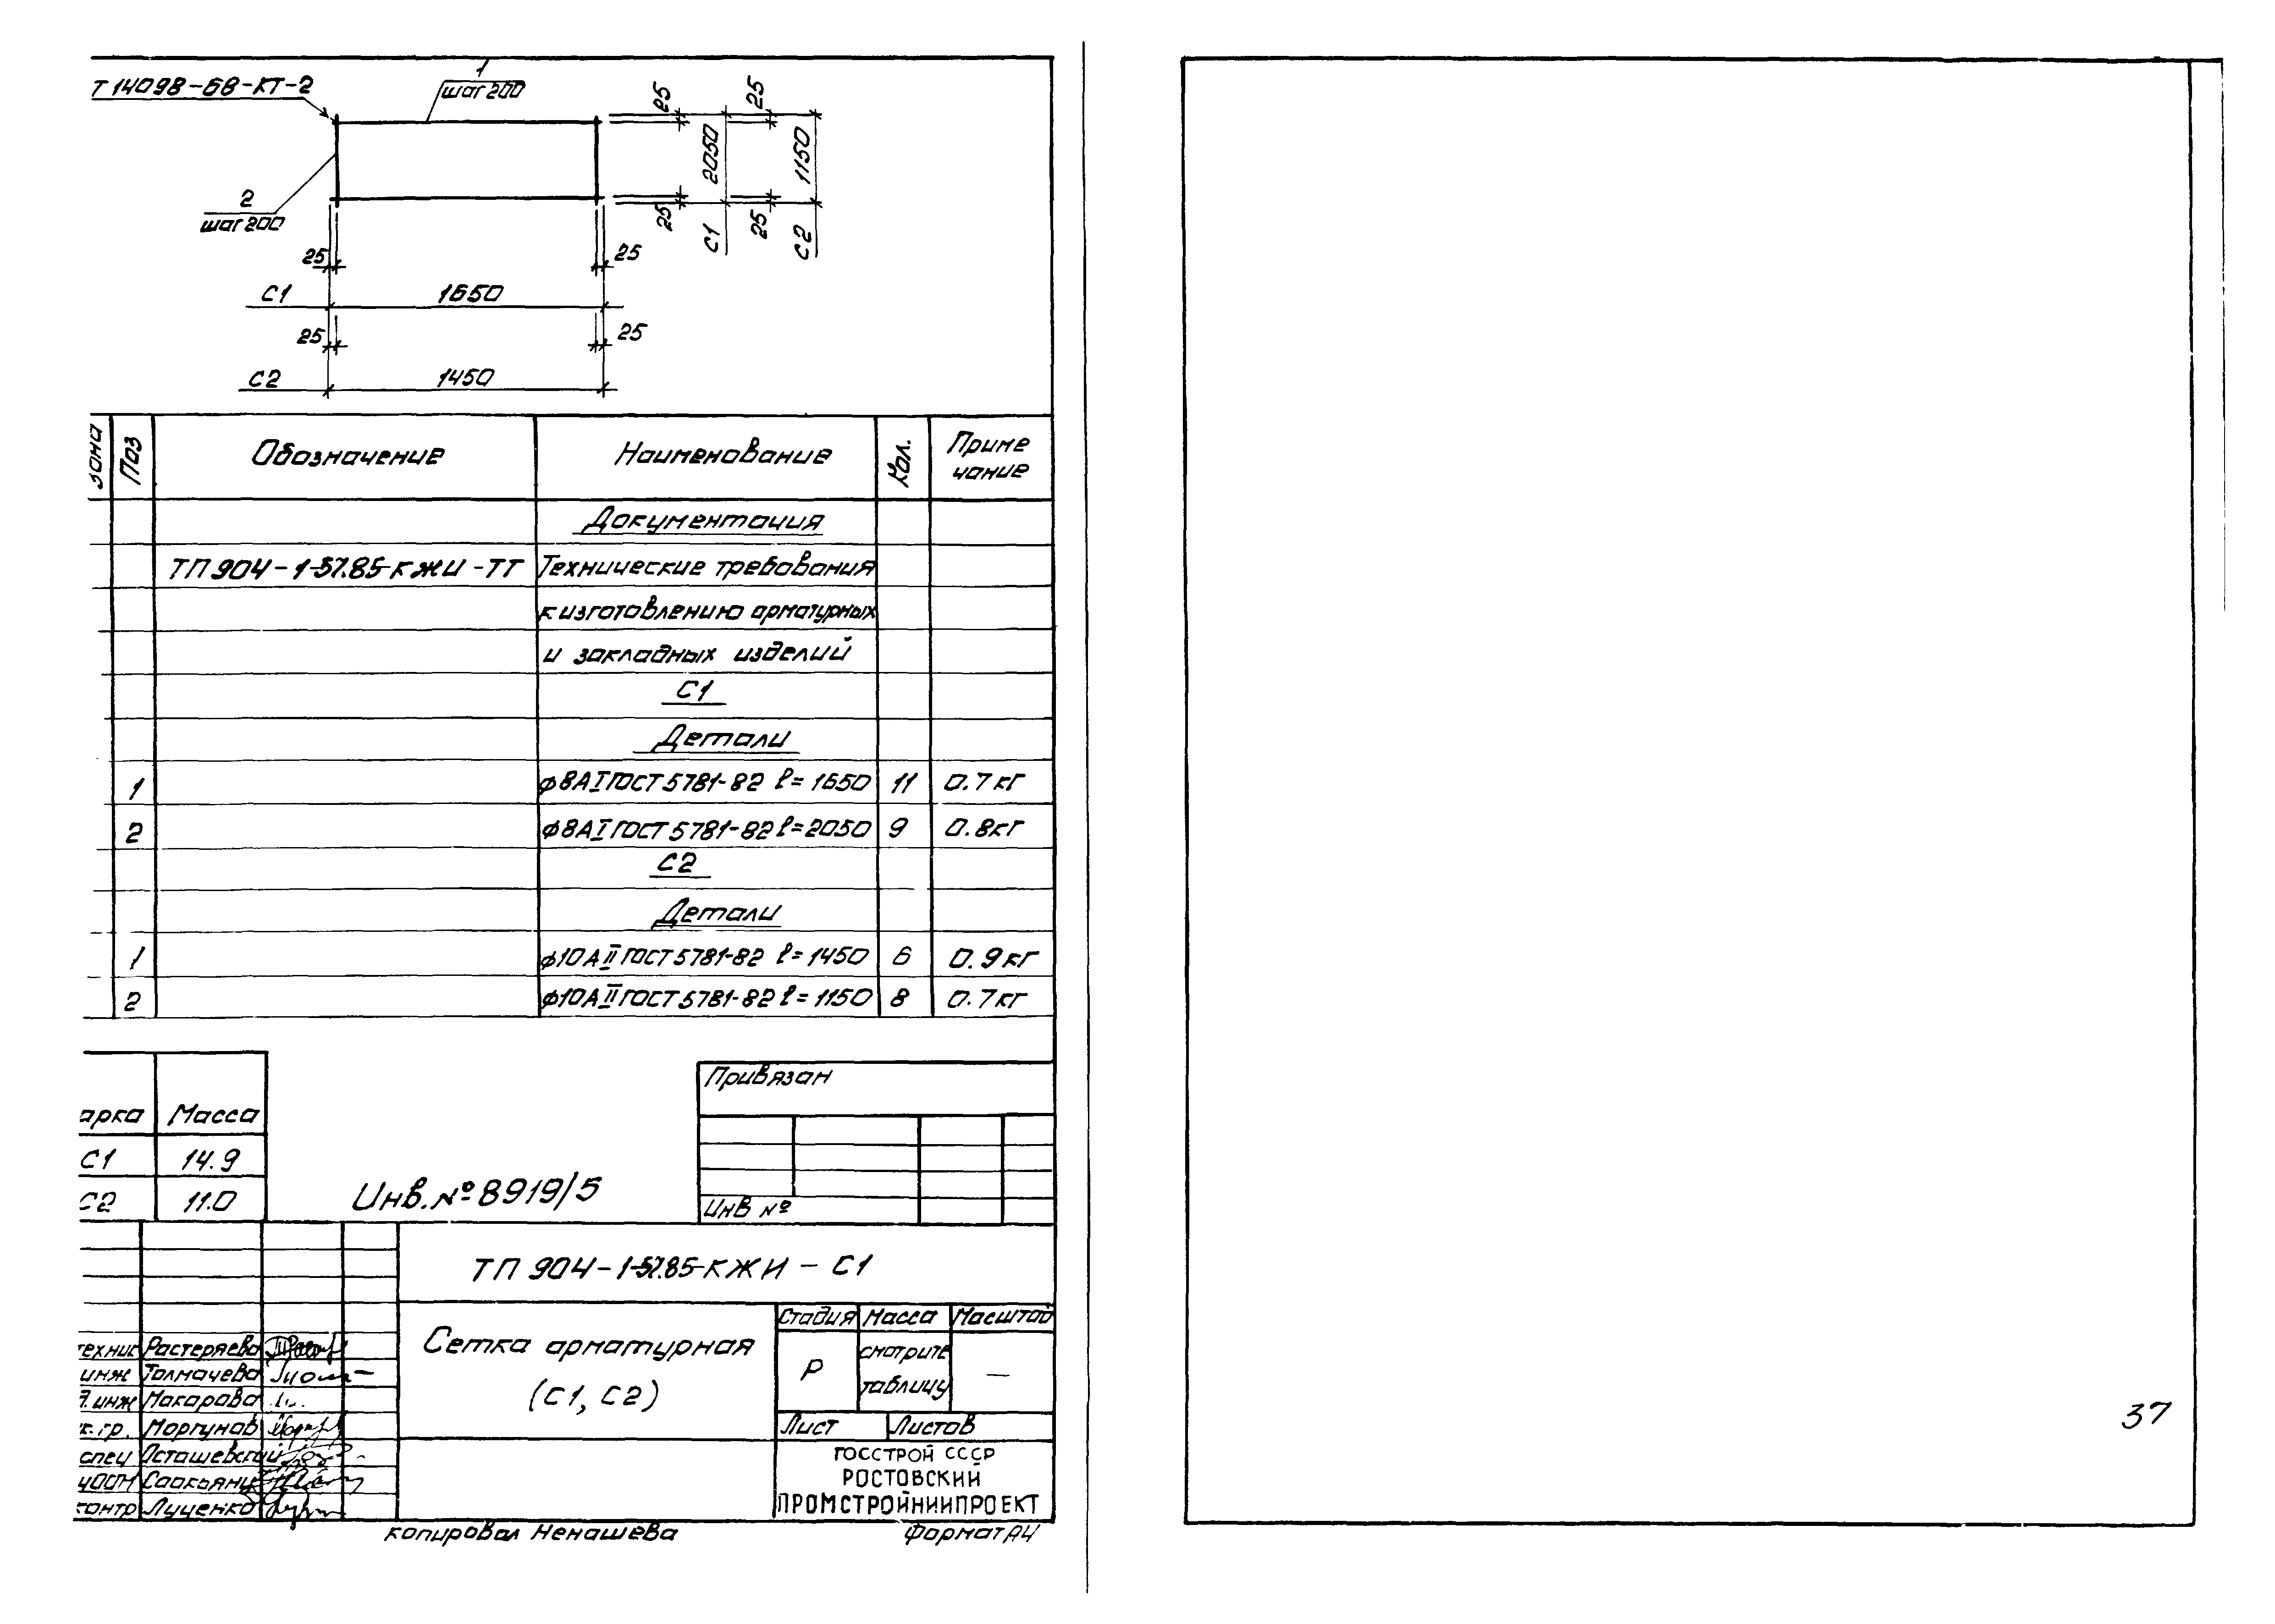 Т 14098-68-КТ-2
1
шаг 200
2
шаг 200
25 25
2050 1150
25 25
С1 С2
25 25
С1 1650
25 25
С2 1450
зона Поз Обозначение Наименование Кол. Приме
чание
Документация
ТП 904-1-57.85-КЖИ-ТТ Технические требования
к изготовлению арматурных
и закладных изделий
С1
Детали
1 ф8АI ГОСТ 5781-82 ℓ=1650 11 0.7кг
2 ф8АI ГОСТ 5781-82 ℓ=2050 9 0.8кг
С2
Детали
1 ф10АII ГОСТ 5781-82 ℓ=1450 6 0.9кг
2 ф10АII ГОСТ 5781-82 ℓ=1150 8 0.7кг
арка Масса
С1 14.9
С2 11.0
Инв. № 8919/5
Привязан
Инв №
ТП 904-1-57.85-КЖИ-С1
Сетка арматурная
(С1, С2)
Стадия Масса Масштаб
Р смотрите
таблицу —
Лист Листов
ГОССТРОЙ СССР
РОСТОВСКИЙ
ПРОМСТРОЙНИИПРОЕКТ
техник Растеряева
инж Толмачева
инж Макарова
к.гр. Моргунов
спец Осташевский
Саакьянц
контр Луценко
копировал Ненашева Формат А4
37